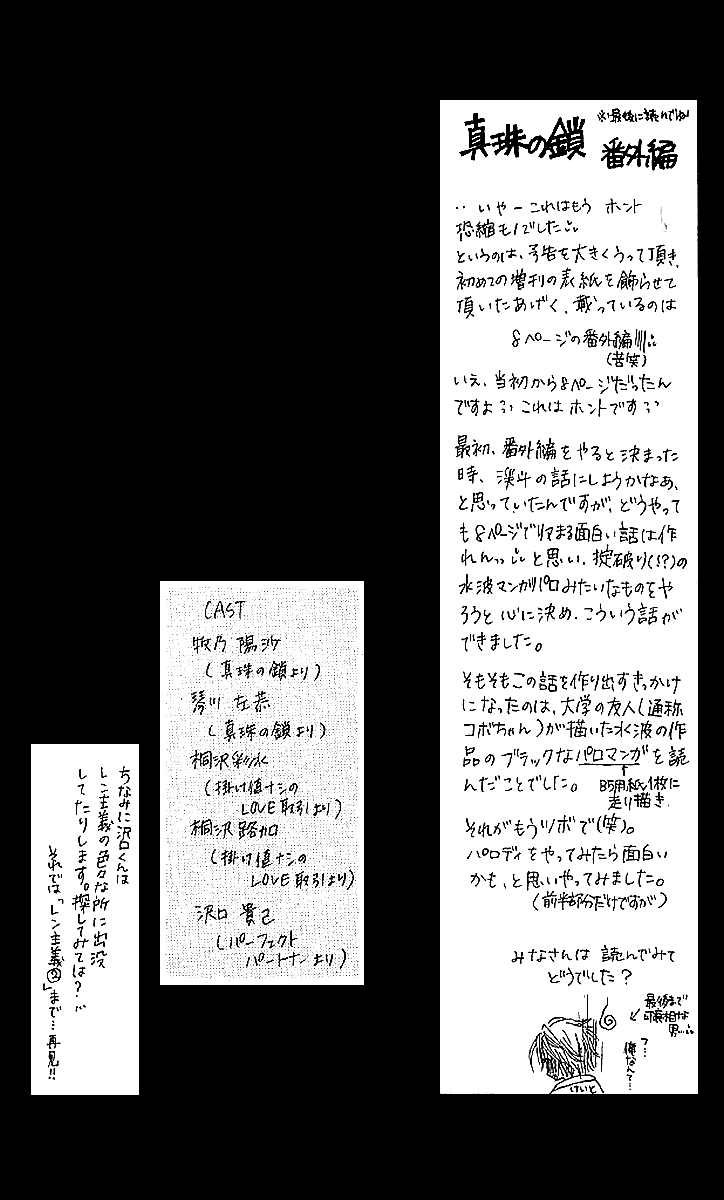 真珠の鎖 番外編
※最後に読んでね
…いやーこれはもう ホント
恐縮モノでした
というのは、予告を大きくうって頂き、
初めての増刊の表紙を飾らせて
頂いたあげく、載っているのは
8ページの番外編
(苦笑)
いえ、当初から8ページだったん
ですよ これはホントです
最初、番外編をやると決まった
時、渓斗の話にしようかなぁ、
と思っていたんですが、どうやって
も8ページで収まる面白い話は作
れんっ と思い、掟破り(!?)の
水波マンガパロみたいなものをや
ろうと心に決め、こういう話が
できました。
そもそもこの話を作り出すきっかけ
になったのは、大学の友人(通称
コボちゃん)が描いた水波の作
品のブラックなパロマンガを読
んだことでした。
B5用紙1枚に
走り描き
それがもうツボで(笑)。
パロディをやってみたら面白い
かも、と思いやってみました。
(前半部分だけですが)
みなさんは読んでみて
どうでした?
最後まで
可哀相な
男…
フ…
俺なんて…
けいと
CAST
牧乃 陽沙
(真珠の鎖より)
琴川 左恭
(真珠の鎖より)
桐沢彩水
(掛け値ナシの
LOVE取引より)
桐沢路加
(掛け値ナシの
LOVE取引より)
沢口 貴己
(パーフェクト
パートナーより)
ちなみに沢口くんは
レン主義の色々な所に出没
してたりします。探してみては?
それでは「レン主義②」まで…再見!!